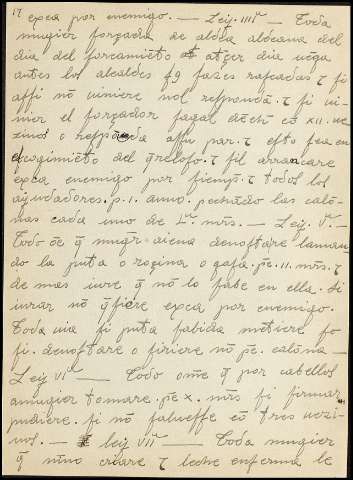 17 exca por enemigo. — Leij. IIIIª — Toda
mugier forçada de aldea alde cana del
dia del forcamiẽto at terçer dia uẽga
antes los alcaldes t̃ 9 fazes rascadas τ ſi
aſſi nõ uiniere nol reſponda. τ ſi ui-
nier el forçador faga direch cõ XII. ue
zinos o reſponda aſſu par. τ eſto ſea en
eſcogimiẽto del q̃relloſo. τ ſil arrancare
exca enemigo por ſiemp̃. τ todos los
ayudadores. p. I. anno. pechãdo las calõ-
nas cada uno de Lª. mr̃s. — Leij. Vª. —
Todo õe q̃ mugr̃ aiena denoſtare laman
do la puta o rocina o gafa. pẽ. II. mr̃s. τ
de mas iure q̃ nõ lo ſabe en ella. Si
iurar nõ q̃ſiere exca por enemigo.
Toda uia ſi puta ſabida metiere fo
ſi. denoſtare o firiere nõ pẽ. calõna —
Leij VIª — Todo ome q̃ por cabellos
amugier tomare. pẽ X. mr̃s ſi firmar
pudiere. ſi nõ ſalueſſe cõ tres uezi-
nos. — leij VIIª — Toda mugier
q̃ nino criare τ leche enferma le